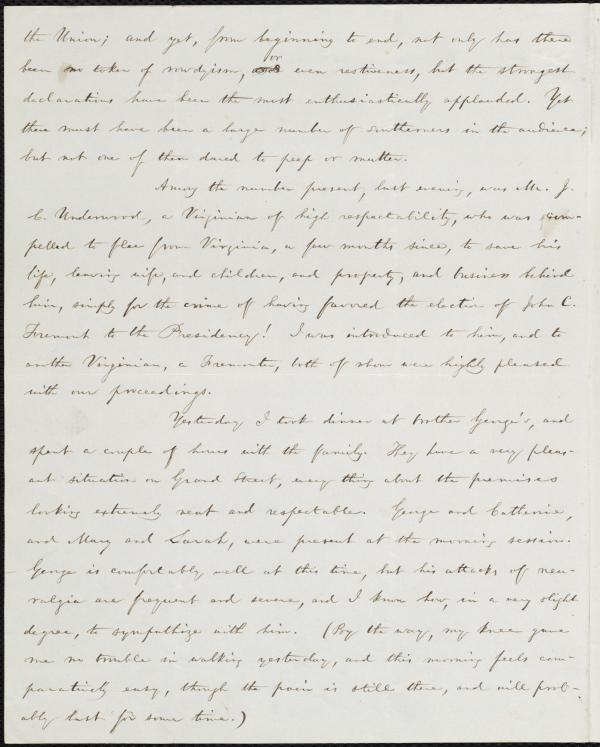 the Union; and yet, from beginning to end, not only has there
been no token of rowdyism, or even restiveness, but the strongest
declarations have been the most enthusiastically applauded. Yet
there must have been a large number of southerners in the audience;
but not one of them dared to peep or mutter.
Among the number present, last evening, was Mr. J.
C. Underwood, a Virginian of high respectability, who was com-
pelled to flee from Virginia, a few months since, to save his
life, leaving wife, and children, and property, and business behind
him, simply for the crime of having favored the election of John C.
Fremont to the Presidency! I was introduced to him, and to
another Virginian, a Fremonter, both of whom were highly pleased
with our proceedings.
Yesterday I took dinner at brother George's, and
spent a couple of hours with the family. They have a very pleas-
ant situation on Grand Street, every thing about the premises
looking extremely neat and respectable. George and Catherine,
and Mary and Sarah, were present at the morning session.
George is comfortably well at this time, but his attacks of neu-
ralgia are frequent and severe, and I know how, in a very slight
degree, to sympathize with him. (By the way, my knee gave
me no trouble in walking yesterday, and this morning feels com-
paratively easy, though the pain is still there, and will prob-
ably last for some time.)